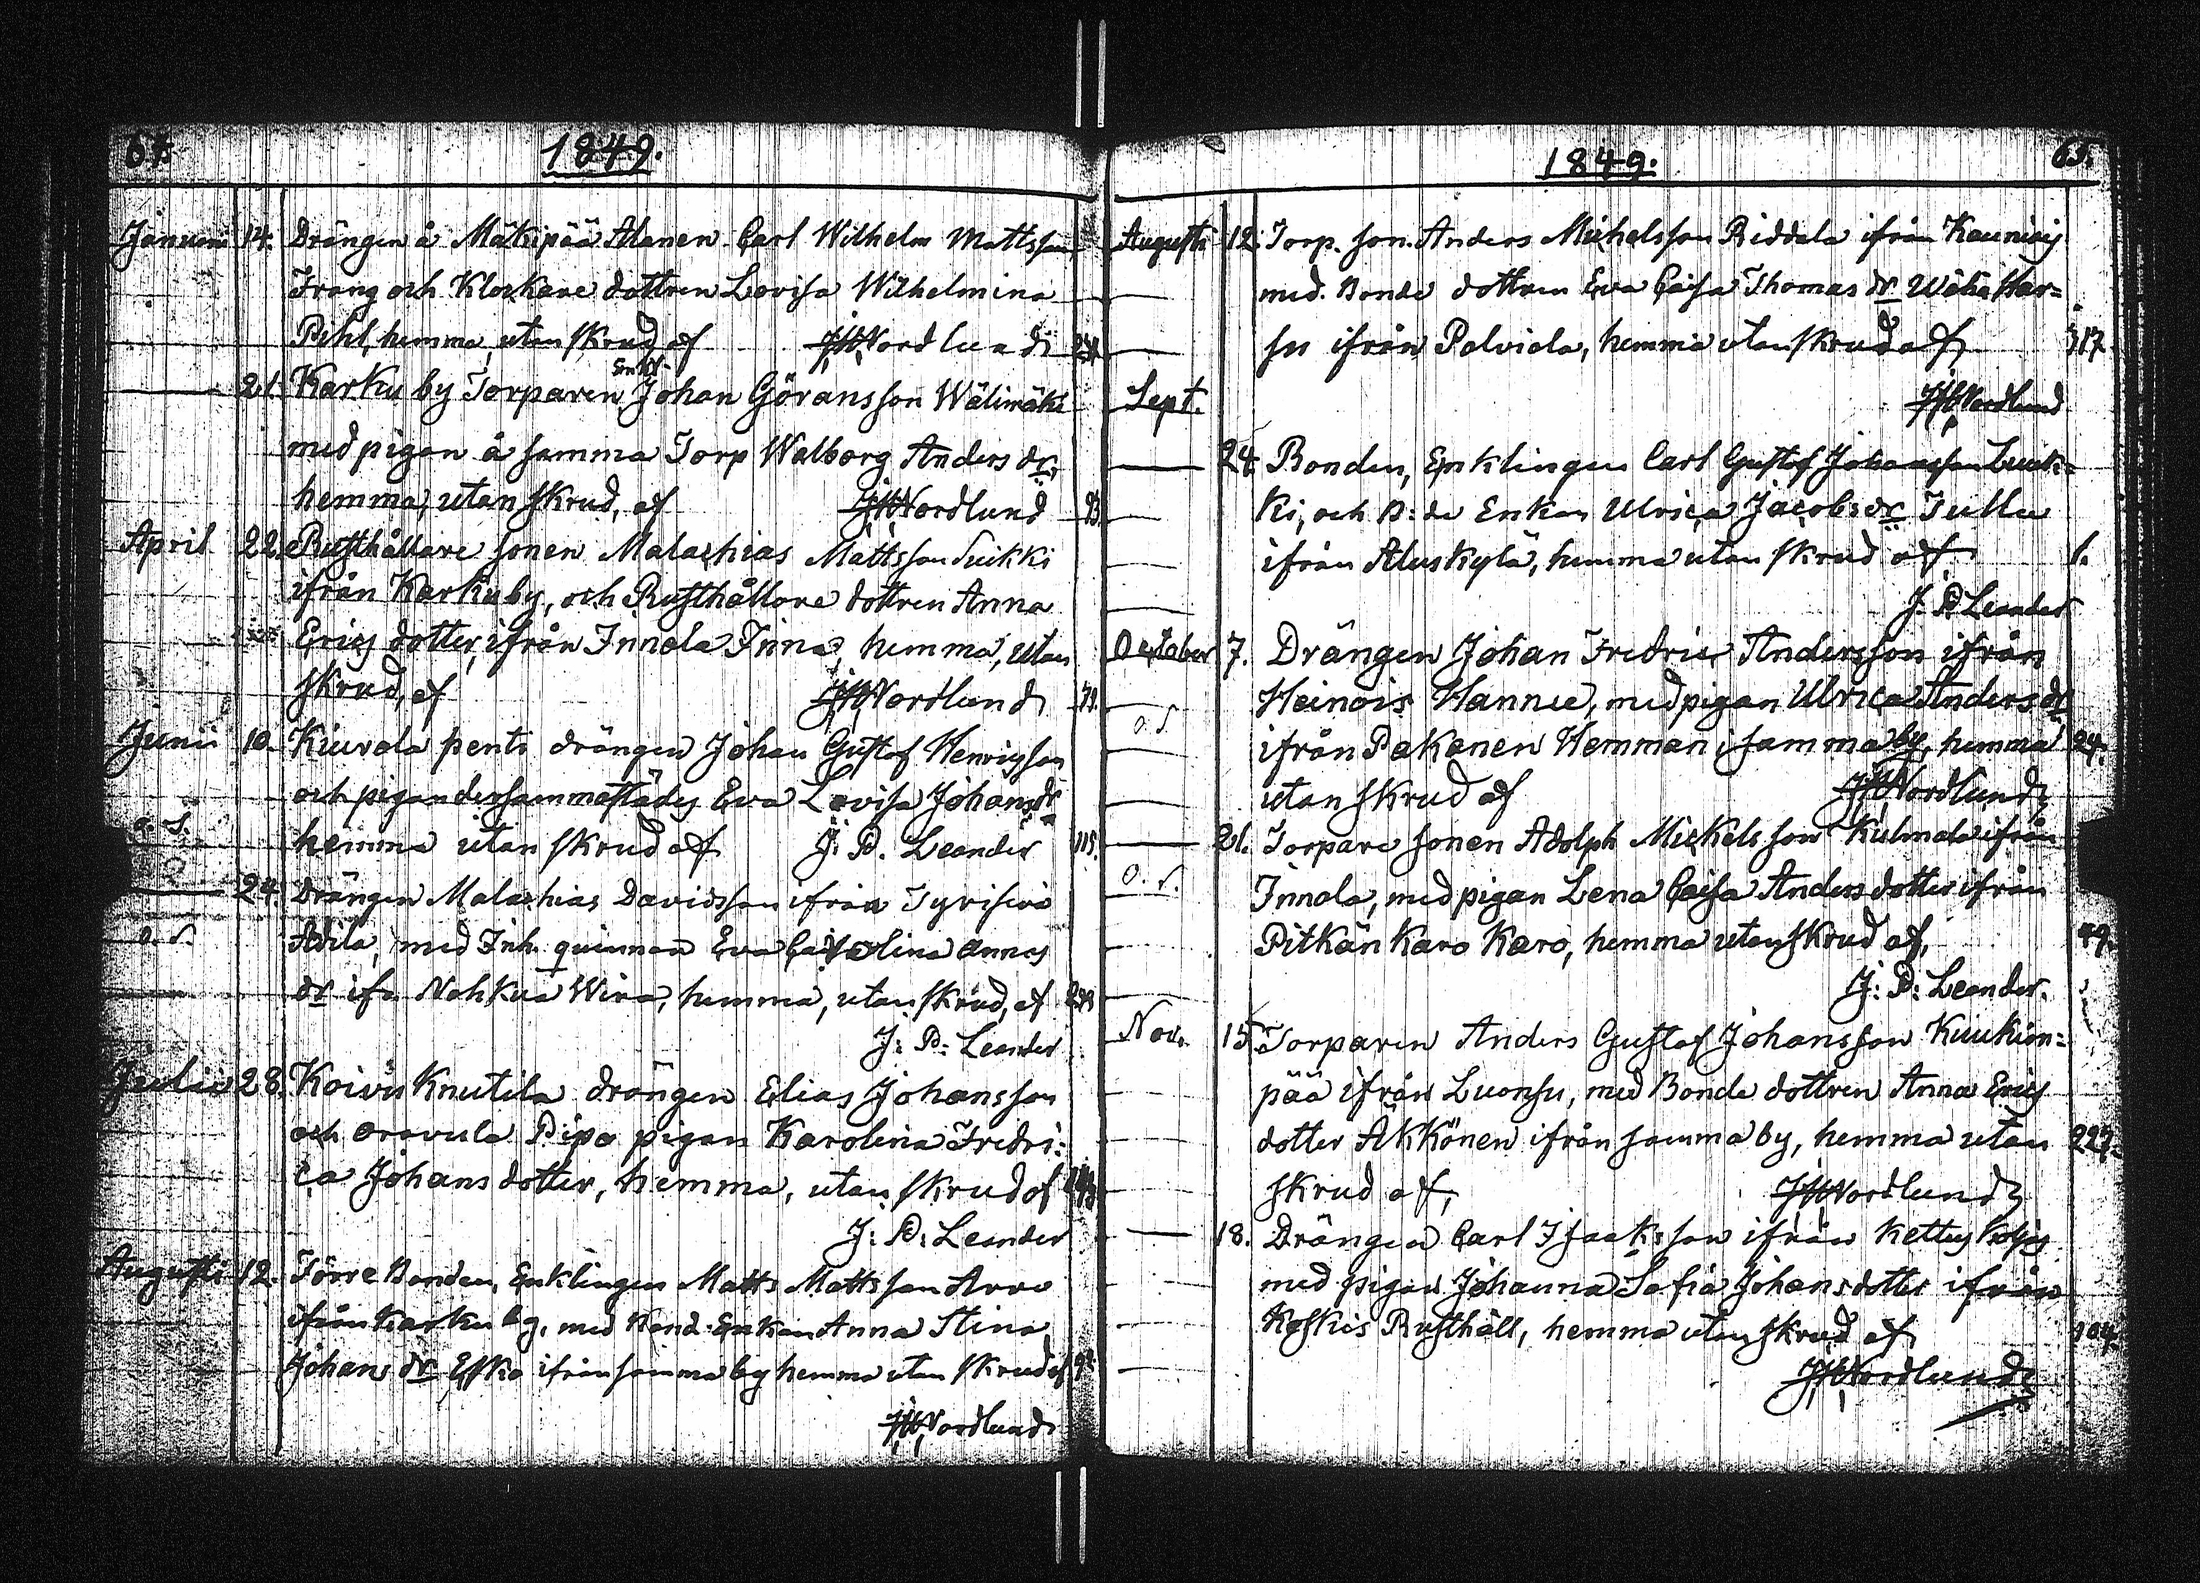 64.
1849.
Januari 14. Drängen å Mäkipää Alanen Carl Wilhelm Mattsson
Frang och Klockare dottren Lovisa Wilhelmina
Pihl, hemma, utan skrud af JWNordlund 24
21. Karku by Torparen Enkl. Johan Göransson Wälimäki
med pigan å samma Torp Walborg Anders dr.
hemma, utan skrud, af JWNordlund 93
April 22. Rusthållare sonen Malachias Mattsson Suikki
ifrån Karku by, och Rusthållare dottren Anna
Erics dotter, ifrån Innola Inna, hemma, utan
skrud, af JWNordlund 79.
Junii 10. Kiurala pents drängen Johan Gustof Henricsson
och pigan dersammastädes Eva Lovisa Johans dr
o. S. hemma utan skrud af J. P. Leander 115.
24. Drängen Malachias Davidsson ifrån Tyrisevä
o. S. Adila, med Inh. quinnan Eva Carolina Annæs
dr ifr. Nohkua Wira, hemma, utan skrud, af
J: P: Leander
Julii 28. Koivu Knutila drängen Elias Johansson
och Oravula Pipo pigan Karolina Fredri-
ca Johans dotter, hemma, utan skrud af
J: P: Leander
Augusti 12. Förre Bonden, Enklingen Matts Mattsson Arvo
ifrån Karku by, med Bond. Enkan Anna Stina
Johans dr Esko ifrån samma by hemma utan skrud af 92.
JWNordlund
1849.
65.
Augusti 12. Torp. son. Anders Michelsson Riddala ifrån Kauniais
med. Bonde dottren Eva Caisa Thomas dr Wähä Har-
su ifrån Palviala, hemma utan skrud af 317
JWNordlund
Sept.
24. Bonden, Enklingen Carl Gustof Johansson Luuk-
ki, och B:de Enkan Ulrica Jacobs dr Tullu
ifrån Aluskylä, hemma utan skrud af 1.
J. P Leander
October 7. Drängen Johan Fredric Andersson ifrån
Heinois Hannu, med pigan Ulrica Anders dr
o. S. ifrån Pakanen Hemman i samma by, hemma 24.
utan skrud af JWNordlund
21. Torpare sonen Adolph Mickelsson Kulmala ifrån
o. S. Innola, med pigan Lena Caisa Anders dotter ifrån
Pitkän Karo Karo, hemma utan skrud af, 49.
J: P: Leander.
Nov. 15. Torparen Anders Gustof Johansson Kuukion-
pää ifrån Luonsu, med Bonde dottren Anna Erics
dotter Äkkönen ifrån samma by, hemma utan 227.
skrud af, JWNordlund
18. Drängen Carl Isaaksson ifrån Kettus Kojois
med pigan Johanna Sofia Johansdotter ifrån
Koskis Rusthåll, hemma utan skrud af 104.
JWNordlund